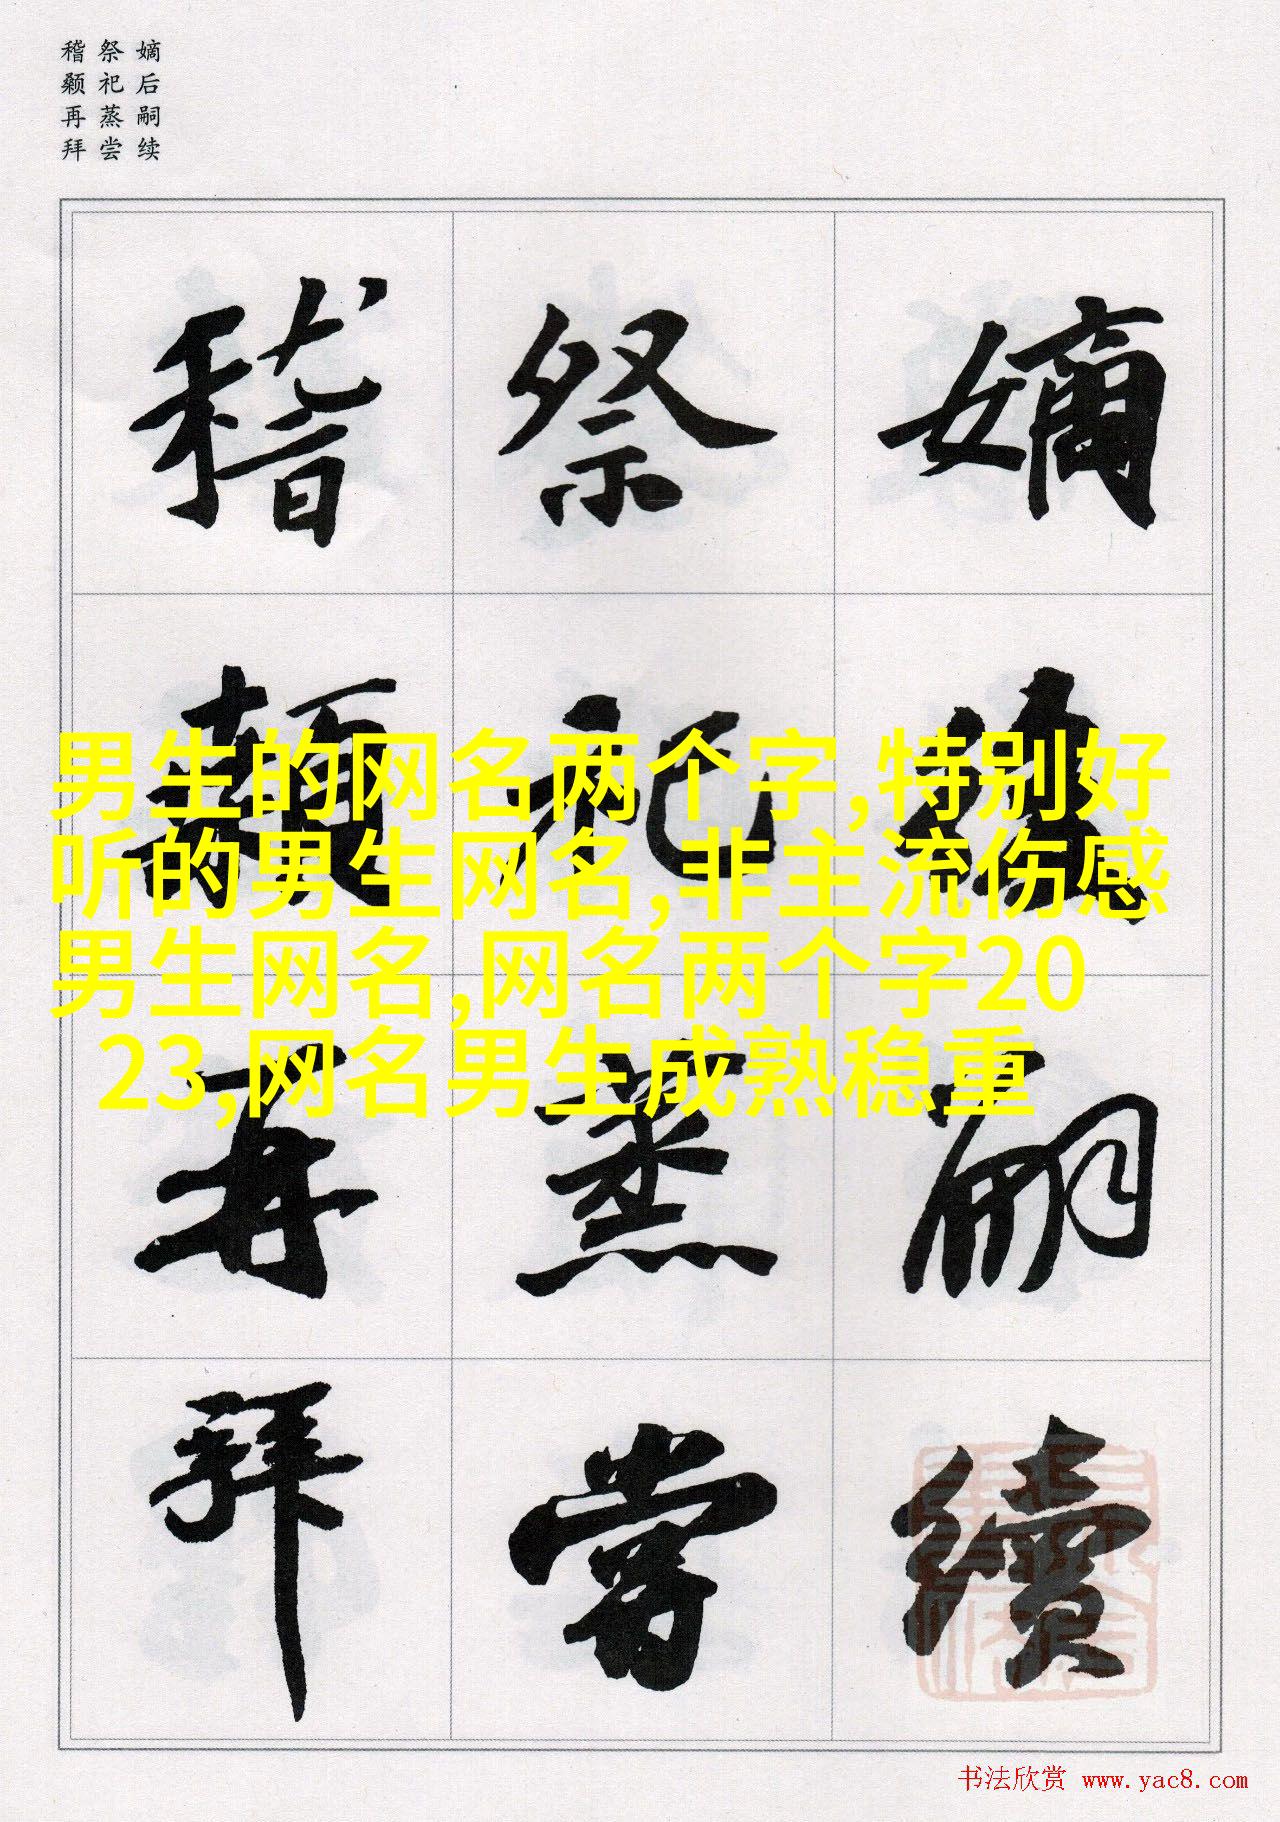 嫡后嗣续
祭祀蒸尝
稽颡再拜
嫡後嗣續
祭祀蒸嘗
稽顙再拜
男生的网名两个字,特别好
听的男生网名,非主流伤感
男生网名,网名两个字20
23,网名男生成熟稳重
书法欣赏 www.yac8.com